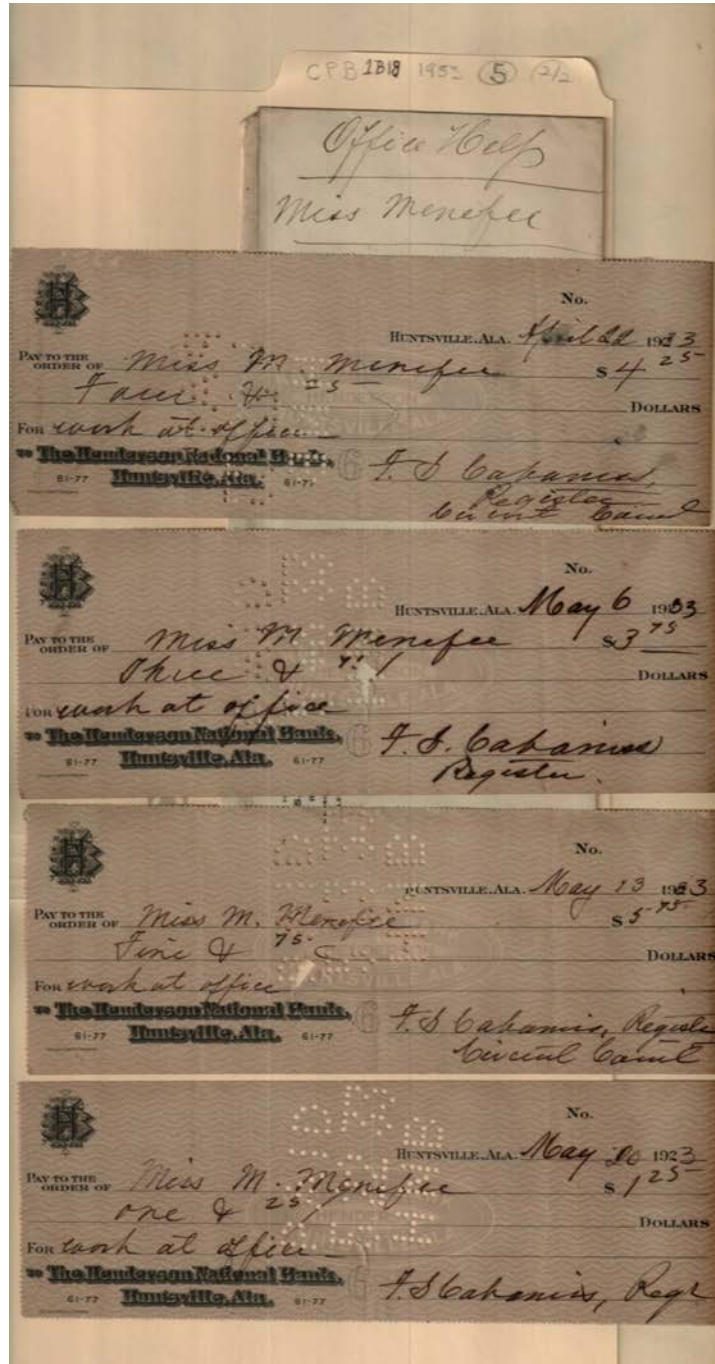 CPB 1B18 1933 (5) (2/2)
Office Help
Miss Menefee
H
No.
Huntsville, Ala. April 22 1933
Pay to the order of Miss M. Menefee $ 4 25
Four & 25 Dollars
For work at office
to The Henderson National Bank,
61-77 Huntsville, Ala. 61-77
F. S Cabaniss,
Register
Circuit Court
H
No.
Huntsville, Ala. May 6 1933
Pay to the order of Miss M Menefee $ 3 75
Three & 75/ Dollars
For work at office
to The Henderson National Bank,
61-77 Huntsville, Ala. 61-77
F. S. Cabaniss
Register.
H
No.
Huntsville, Ala. May 13 1933
Pay to the order of Miss M. Menefee $ 5 75
Five & 75 Dollars
For work at office
to The Henderson National Bank,
61-77 Huntsville, Ala. 61-77
F. S Cabaniss, Register
Circuit Court
H
No.
Huntsville, Ala. May 20 1923
Pay to the order of Miss M. Menefee $ 1 25
one & 25/ Dollars
For work at office
to The Henderson National Bank,
61-77 Huntsville, Ala. 61-77
F. S Cabaniss, Regr